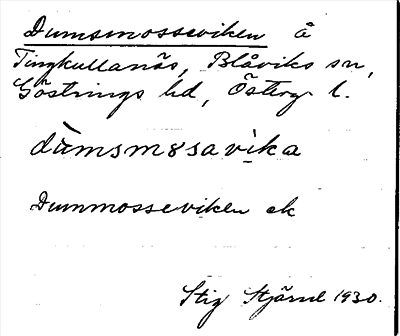 Dumsmosseviken å
Tingkullanäs, Blåviks sn,
Göstrings hd, Österg. l.
dùmsm8savìka
Dummosseviken ek
Stig Stjärne 1930.